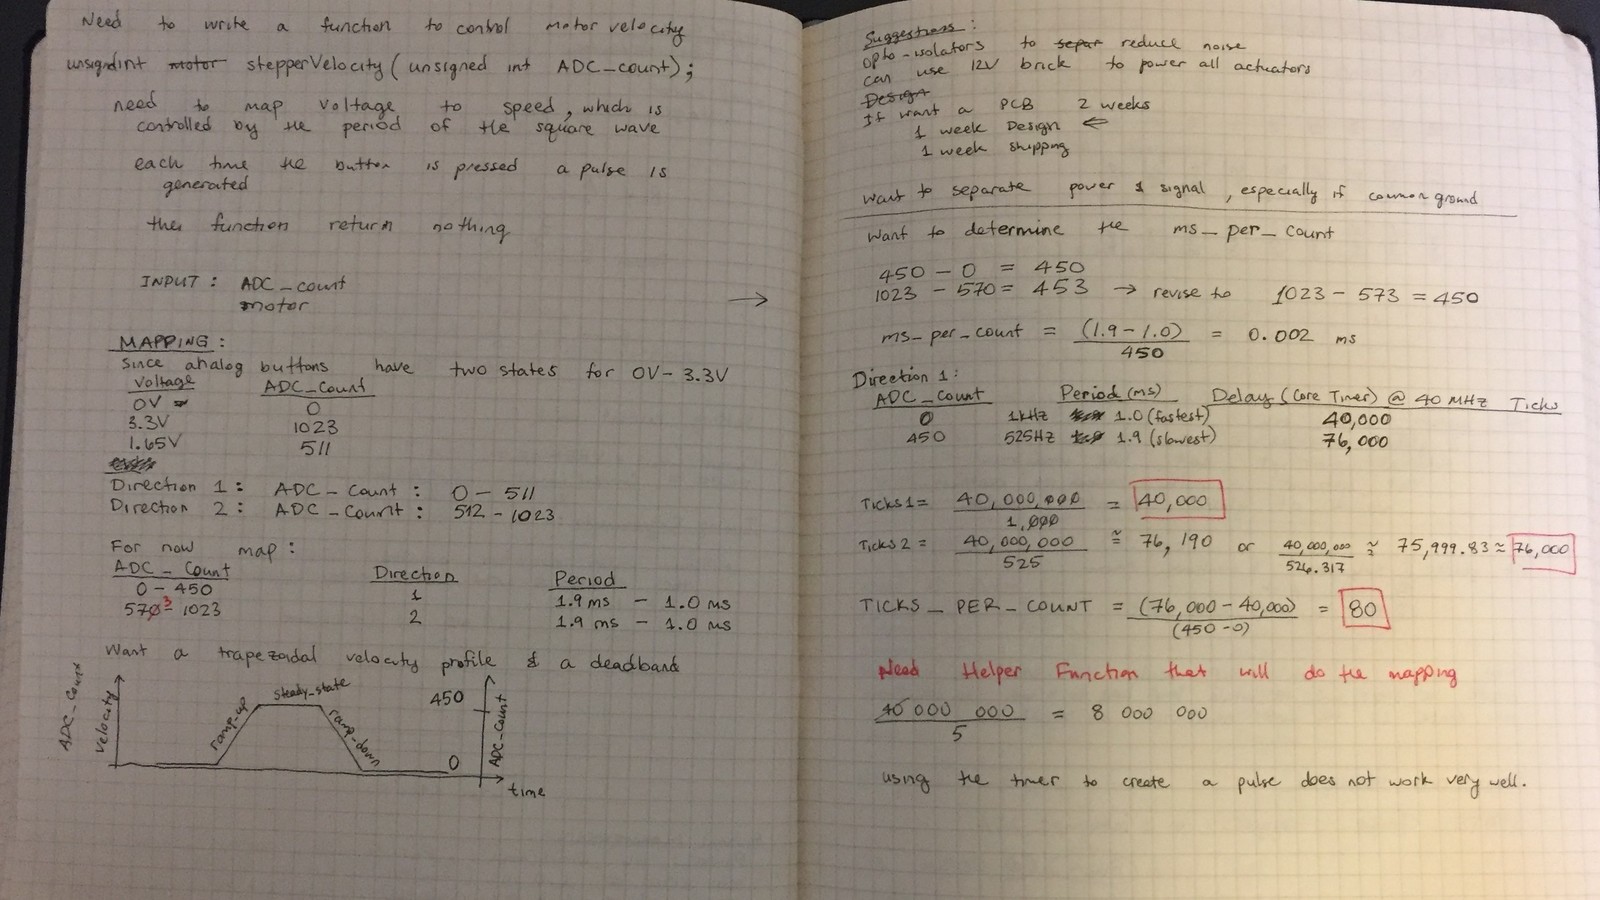 Need to write a function to control motor velocity
unsigndint motor stepperVelocity (unsigned int ADC_count);
need to map voltage to speed, which is
controlled by the period of the square wave
each time the button is pressed a pulse is
generated
the function return nothing
INPUT: ADC_count
motor
→
MAPPING:
Since analog buttons have two states for 0V-3.3V
Voltage ADC_Count
0V 0
3.3V 1023
1.65V 511
Direction 1: ADC_Count: 0-511
Direction 2: ADC_Count: 512-1023
For now map:
ADC_Count Direction Period
0-450 1 1.9ms - 1.0ms
573-1023 2 1.9ms - 1.0ms
Want a trapezoidal velocity profile & a deadband
ADC_Count
Velocity
ramp_up
steady_state
ramp_down
450
0
ADC_Count
time
Suggestions:
opto-isolators to separ reduce noise
can use 12V brick to power all actuators
Design
If want a PCB 2 weeks
1 week Design ←
1 week shipping
Want to separate power & signal, especially if common ground
Want to determine the ms_per_count
450 - 0 = 450
1023 - 570 = 453 → revise to 1023 - 573 = 450
ms_per_count = (1.9-1.0)/450 = 0.002 ms
Direction 1:
ADC_Count Period (ms) Delay (Core Timer) @ 40 MHz Ticks
0 1kHz 1.0 (fastest) 40,000
450 525Hz 1.9 (slowest) 76,000
Ticks1 = 40,000,000/1,000 = 40,000
Ticks2 = 40,000,000/525 ≅ 76,190 or 40,000,000/526.317 ≅ 75,999.83 ≅ 76,000
TICKS_PER_COUNT = (76,000-40,000)/(450-0) = 80
Need Helper Function that will do the mapping
40 000 000/5 = 8 000 000
using the timer to create a pulse does not work very well.